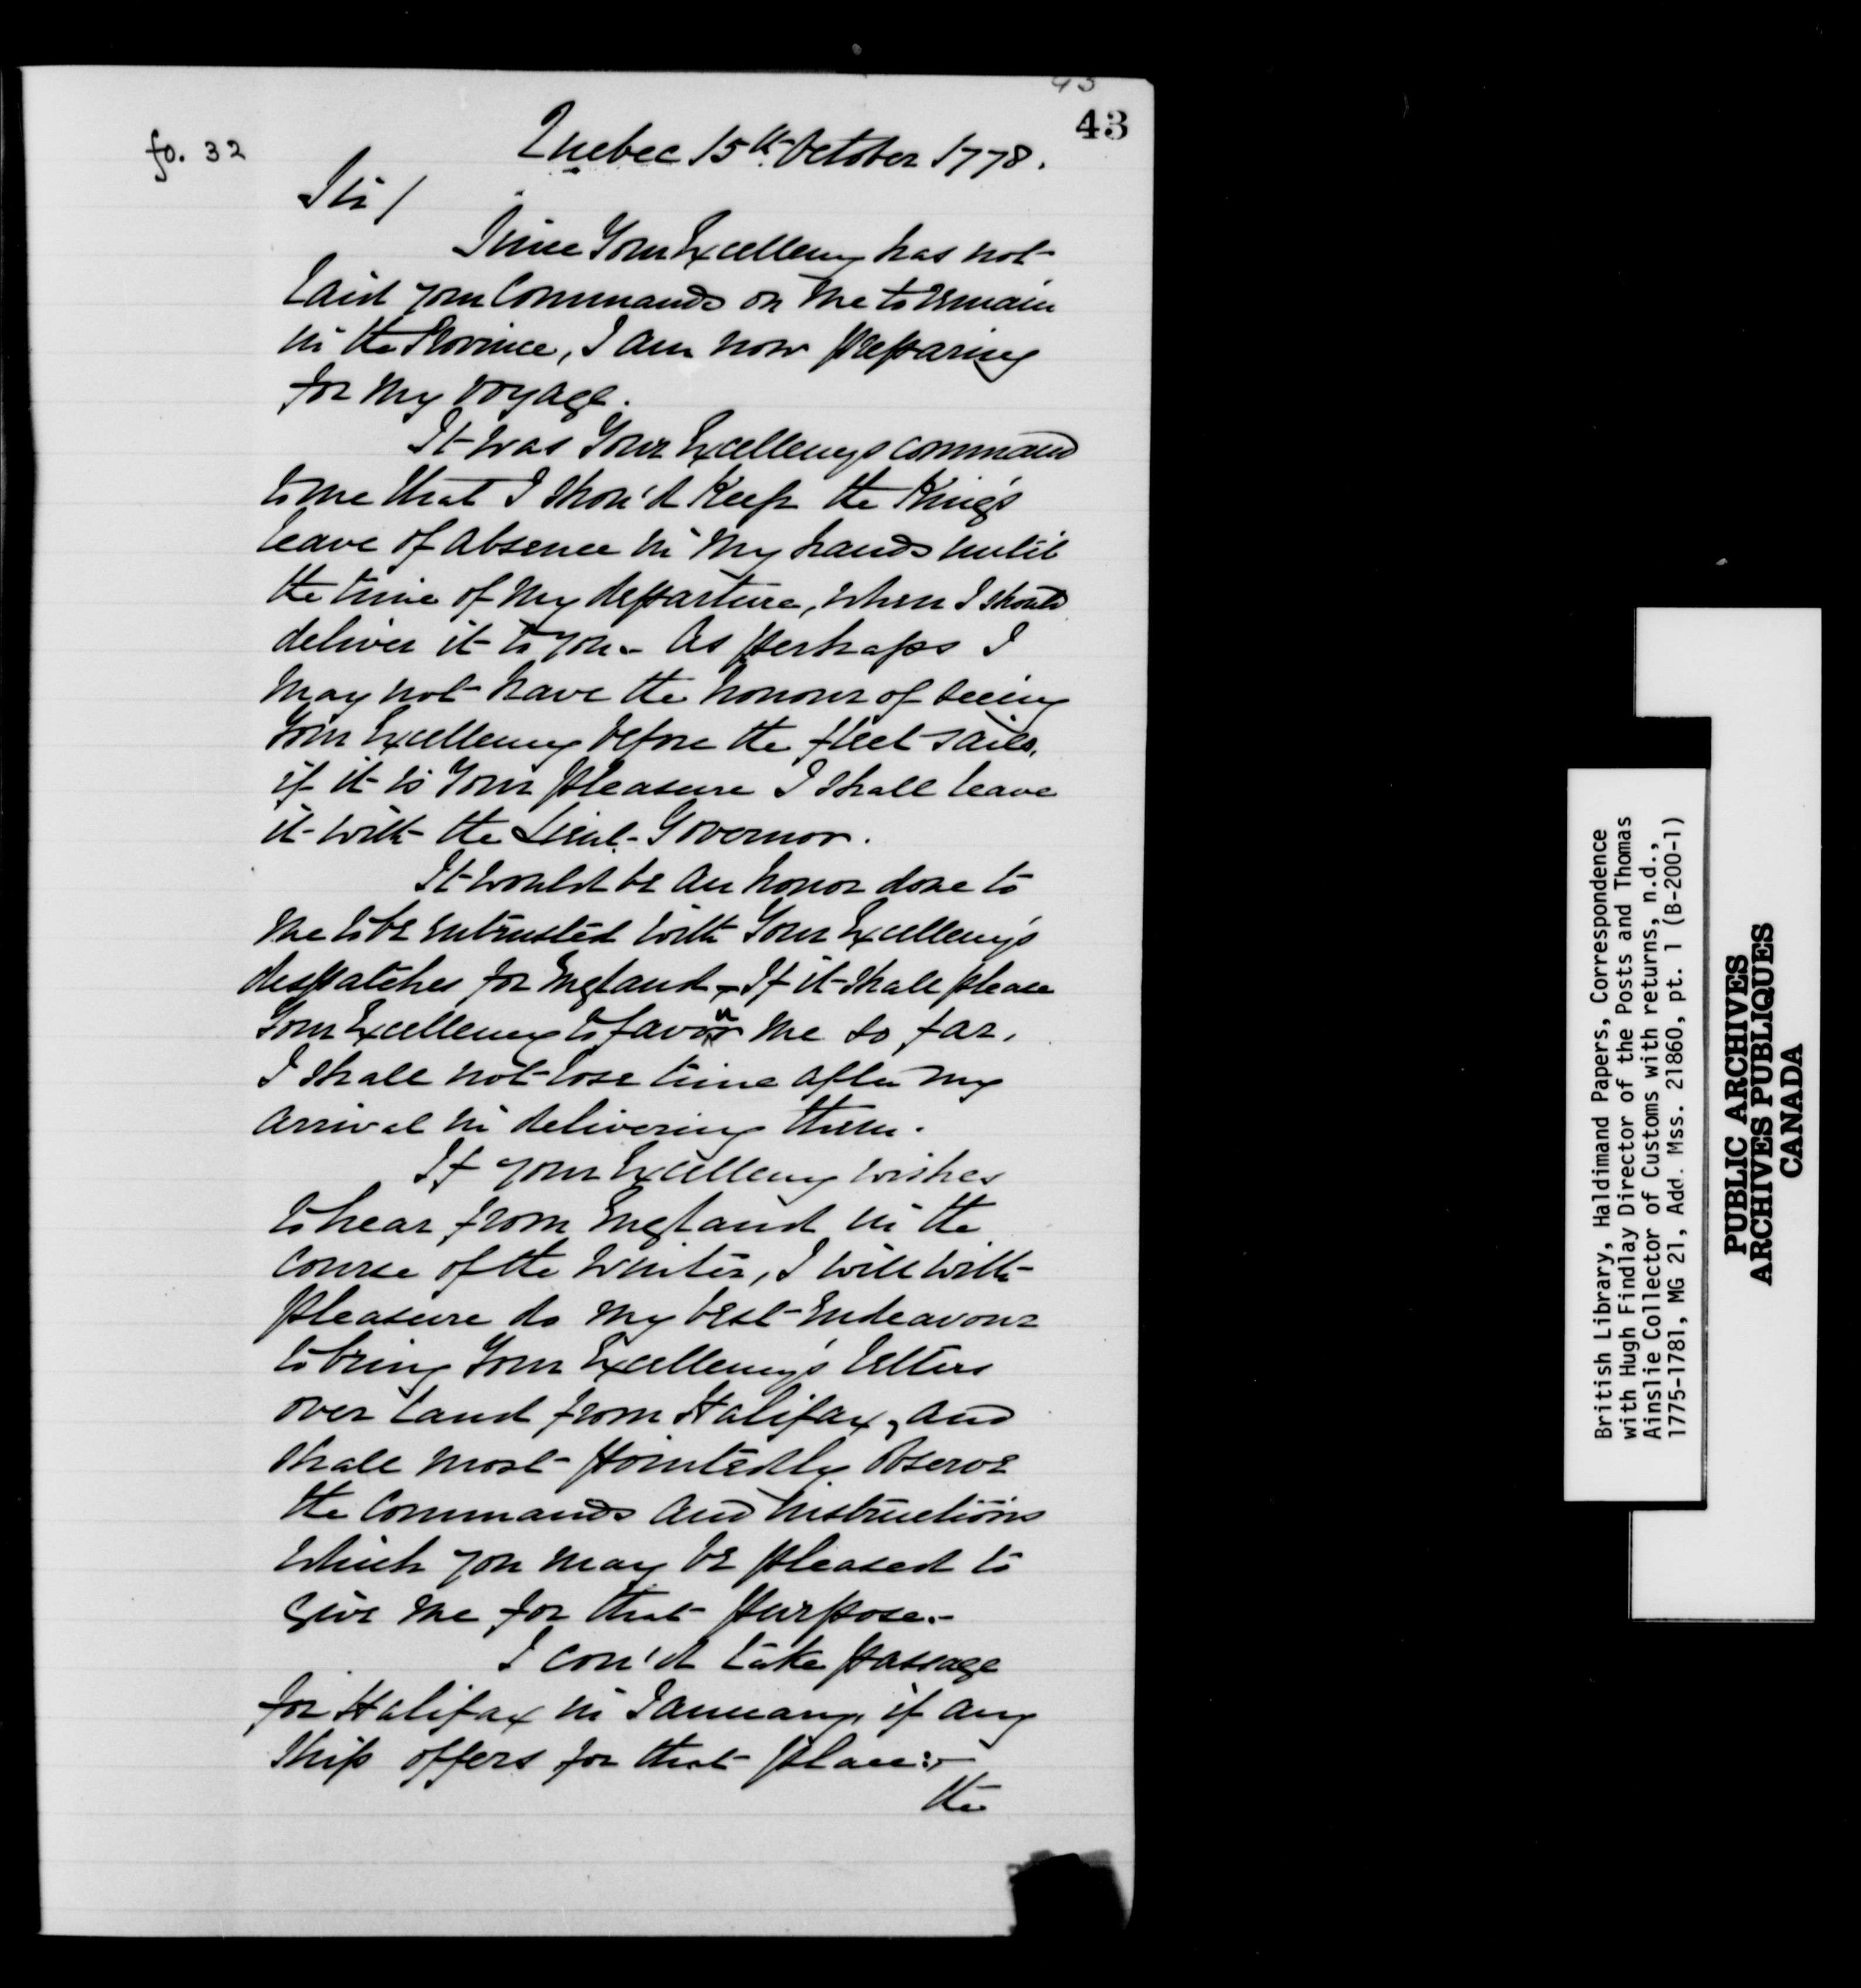 43
43
fo. 32
Quebec 15th October 1778.
Sir/
Since Your Excellency has not
laid your Commands on me to remain
in the Province, I am now preparing
for my voyage.
It was Your Excellencys command
to me that I shou'd keep the King's
leave of absence in my hands until
the time of my departure, when I should
deliver it to you. - As perhaps I
may not have the honour of seeing
Your Excellency before the fleet sails,
if it is Your pleasure I shall leave
it with the Lieut. Governor.
It would be an honor done to
me to be entrusted with Your Excellency's
despatches for England, - If it shall please
Your Excellency to favour me so far,
I shall not lose time after my
arrival in delivering them.
If your Excellency wishes
to hear from England in the
course of the Winter, I will with
pleasure do my best Endeavour
to bring Your Excellency's letters
over land from Halifax, and
shall most pointedly observe
the Commands and instructions
which you may be pleased to
give me for that purpose. -
I cou'd take passage
for Halifax in January, if any
Ship offers for that place: -
the
British Library, Haldimand Papers, Correspondence
with Hugh Findlay Director of the Posts and Thomas
Ainslie Collector of Customs with returns, n.d.,
1775-1781, MG 21, Add. Mss. 21860, pt. 1 (B-200-1)
PUBLIC ARCHIVES
ARCHIVES PUBLIQUES
CANADA